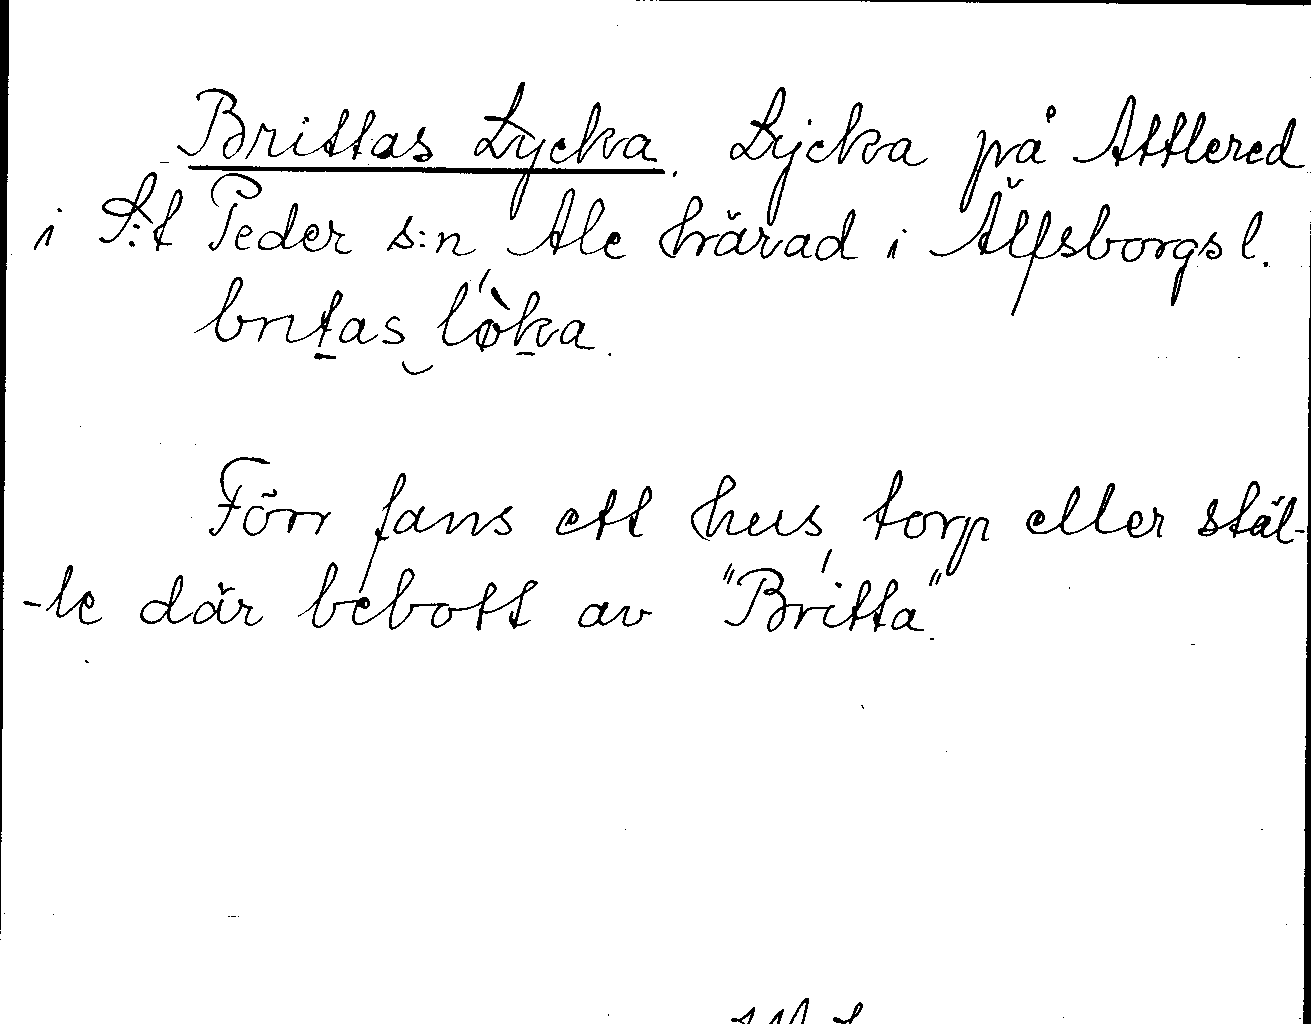 Brittas Lycka. Lycka på Attlered
i S:t Peder s:n Ale härad i Älfsborgs l.
britas lø̀ka.
Förr fans ett hus, torp eller stäl-
-le där bebott av "Britta".